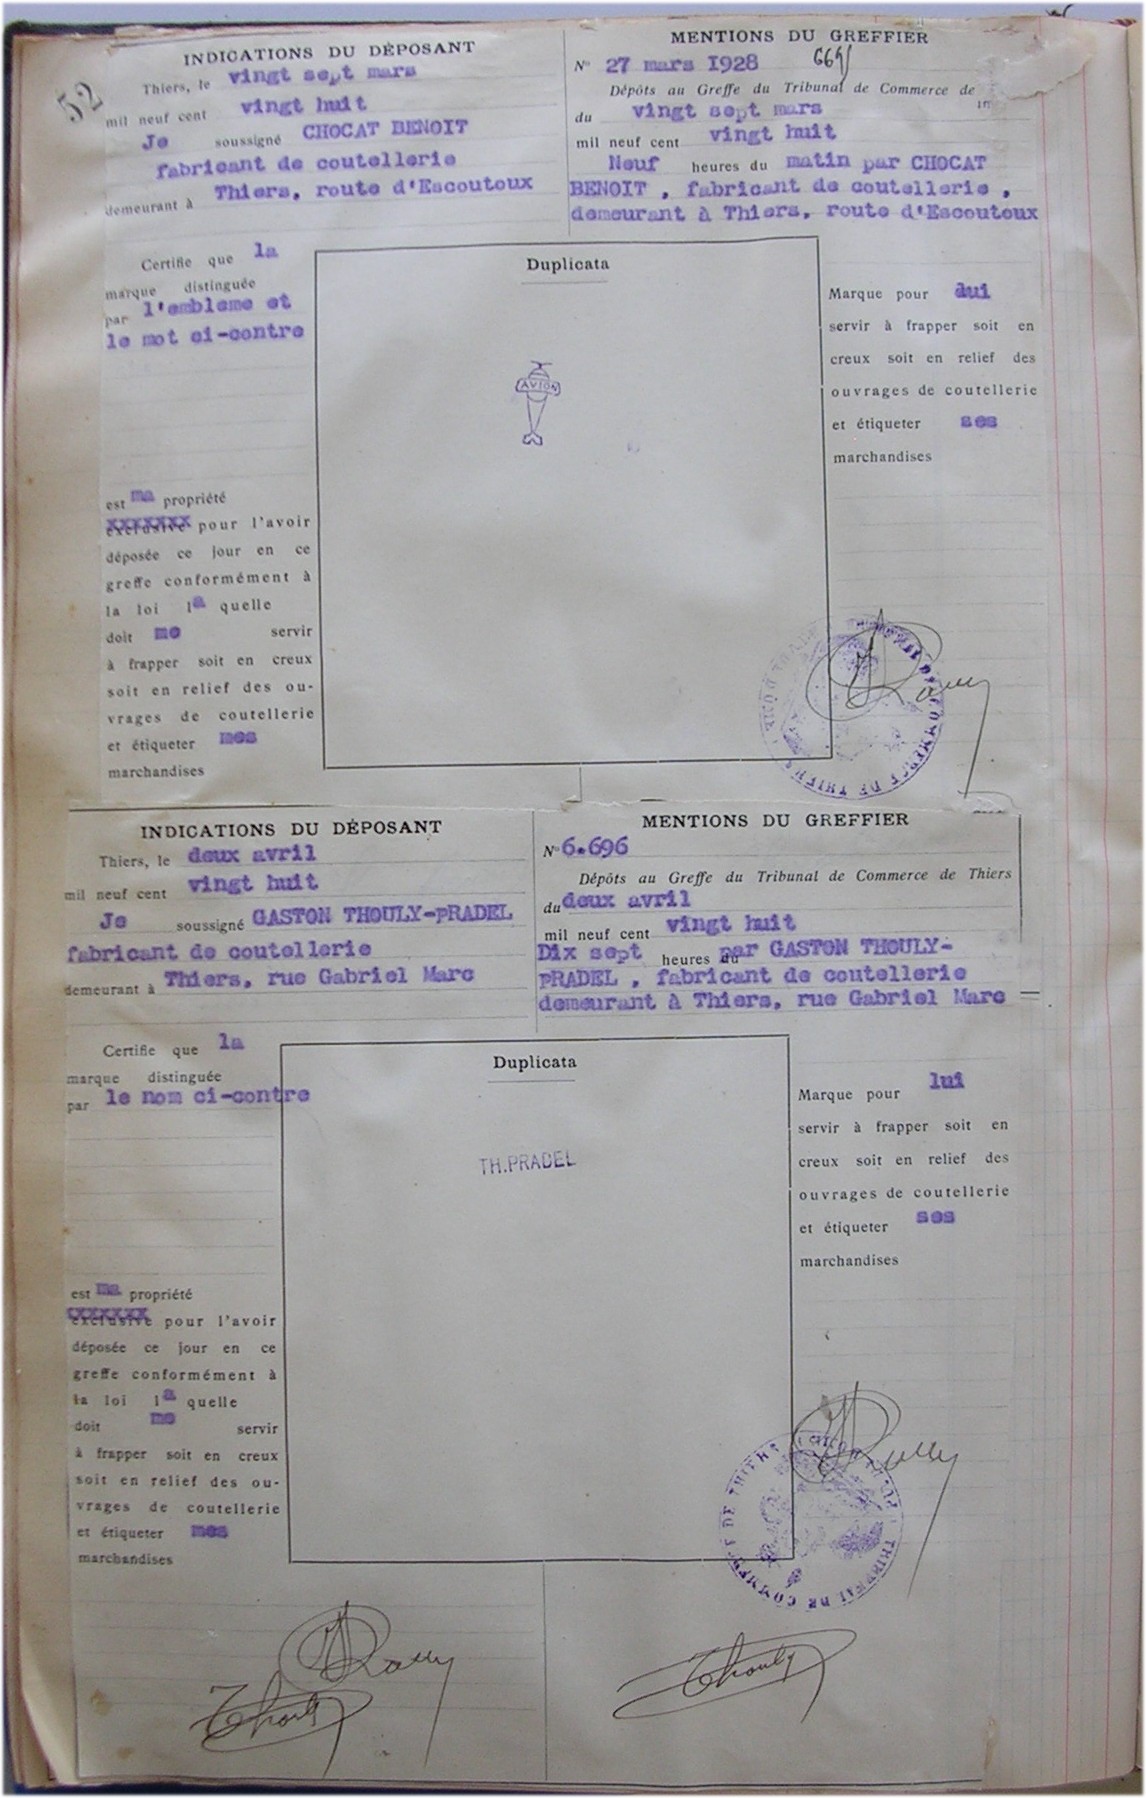 52
INDICATIONS DU DÉPOSANT
Thiers, le vingt sept mars
mil neuf cent vingt huit
Je soussigné CHOCAT BENOIT
fabricant de coutellerie
demeurant à Thiers, route d'Escoutoux
MENTIONS DU GREFFIER
N° 27 mars 1928
Dépôts au Greffe du Tribunal de Commerce de
du vingt sept mars
mil neuf cent vingt huit
Neuf heures du matin par CHOCAT
BENOIT , fabricant de coutellerie ,
demeurant à Thiers, route d'Escoutoux
Certifie que la
marque distinguée
par l'embleme et
le mot ci-contre
est ma propriété
exclusive pour l'avoir
déposée ce jour en ce
greffe conformément à
la loi la quelle
doit me servir
à frapper soit en creux
soit en relief des ou-
vrages de coutellerie
et étiqueter mes
marchandises
Duplicata
AVION
Marque pour lui
servir à frapper soit en
creux soit en relief des
ouvrages de coutellerie
et étiqueter ses
marchandises
INDICATIONS DU DÉPOSANT
Thiers, le deux avril
mil neuf cent vingt huit
Je soussigné GASTON THOULY-PRADEL
fabricant de coutellerie
demeurant à Thiers, rue Gabriel Marc
MENTIONS DU GREFFIER
N° 6.696
Dépôts au Greffe du Tribunal de Commerce de Thiers
du deux avril
mil neuf cent vingt huit
Dix sept heures du par GASTON THOULY-
PRADEL , fabricant de coutellerie
demeurant à Thiers, rue Gabriel Marc
Certifie que la
marque distinguée
par le nom ci-contre
est ma propriété
exclusive pour l'avoir
déposée ce jour en ce
greffe conformément à
la loi la quelle
doit me servir
à frapper soit en creux
soit en relief des ou-
vrages de coutellerie
et étiqueter mes
marchandises
Duplicata
TH.PRADEL
Marque pour lui
servir à frapper soit en
creux soit en relief des
ouvrages de coutellerie
et étiqueter ses
marchandises
TRIBUNAL DE COMMERCE DE THIERS
Thouly
Thouly